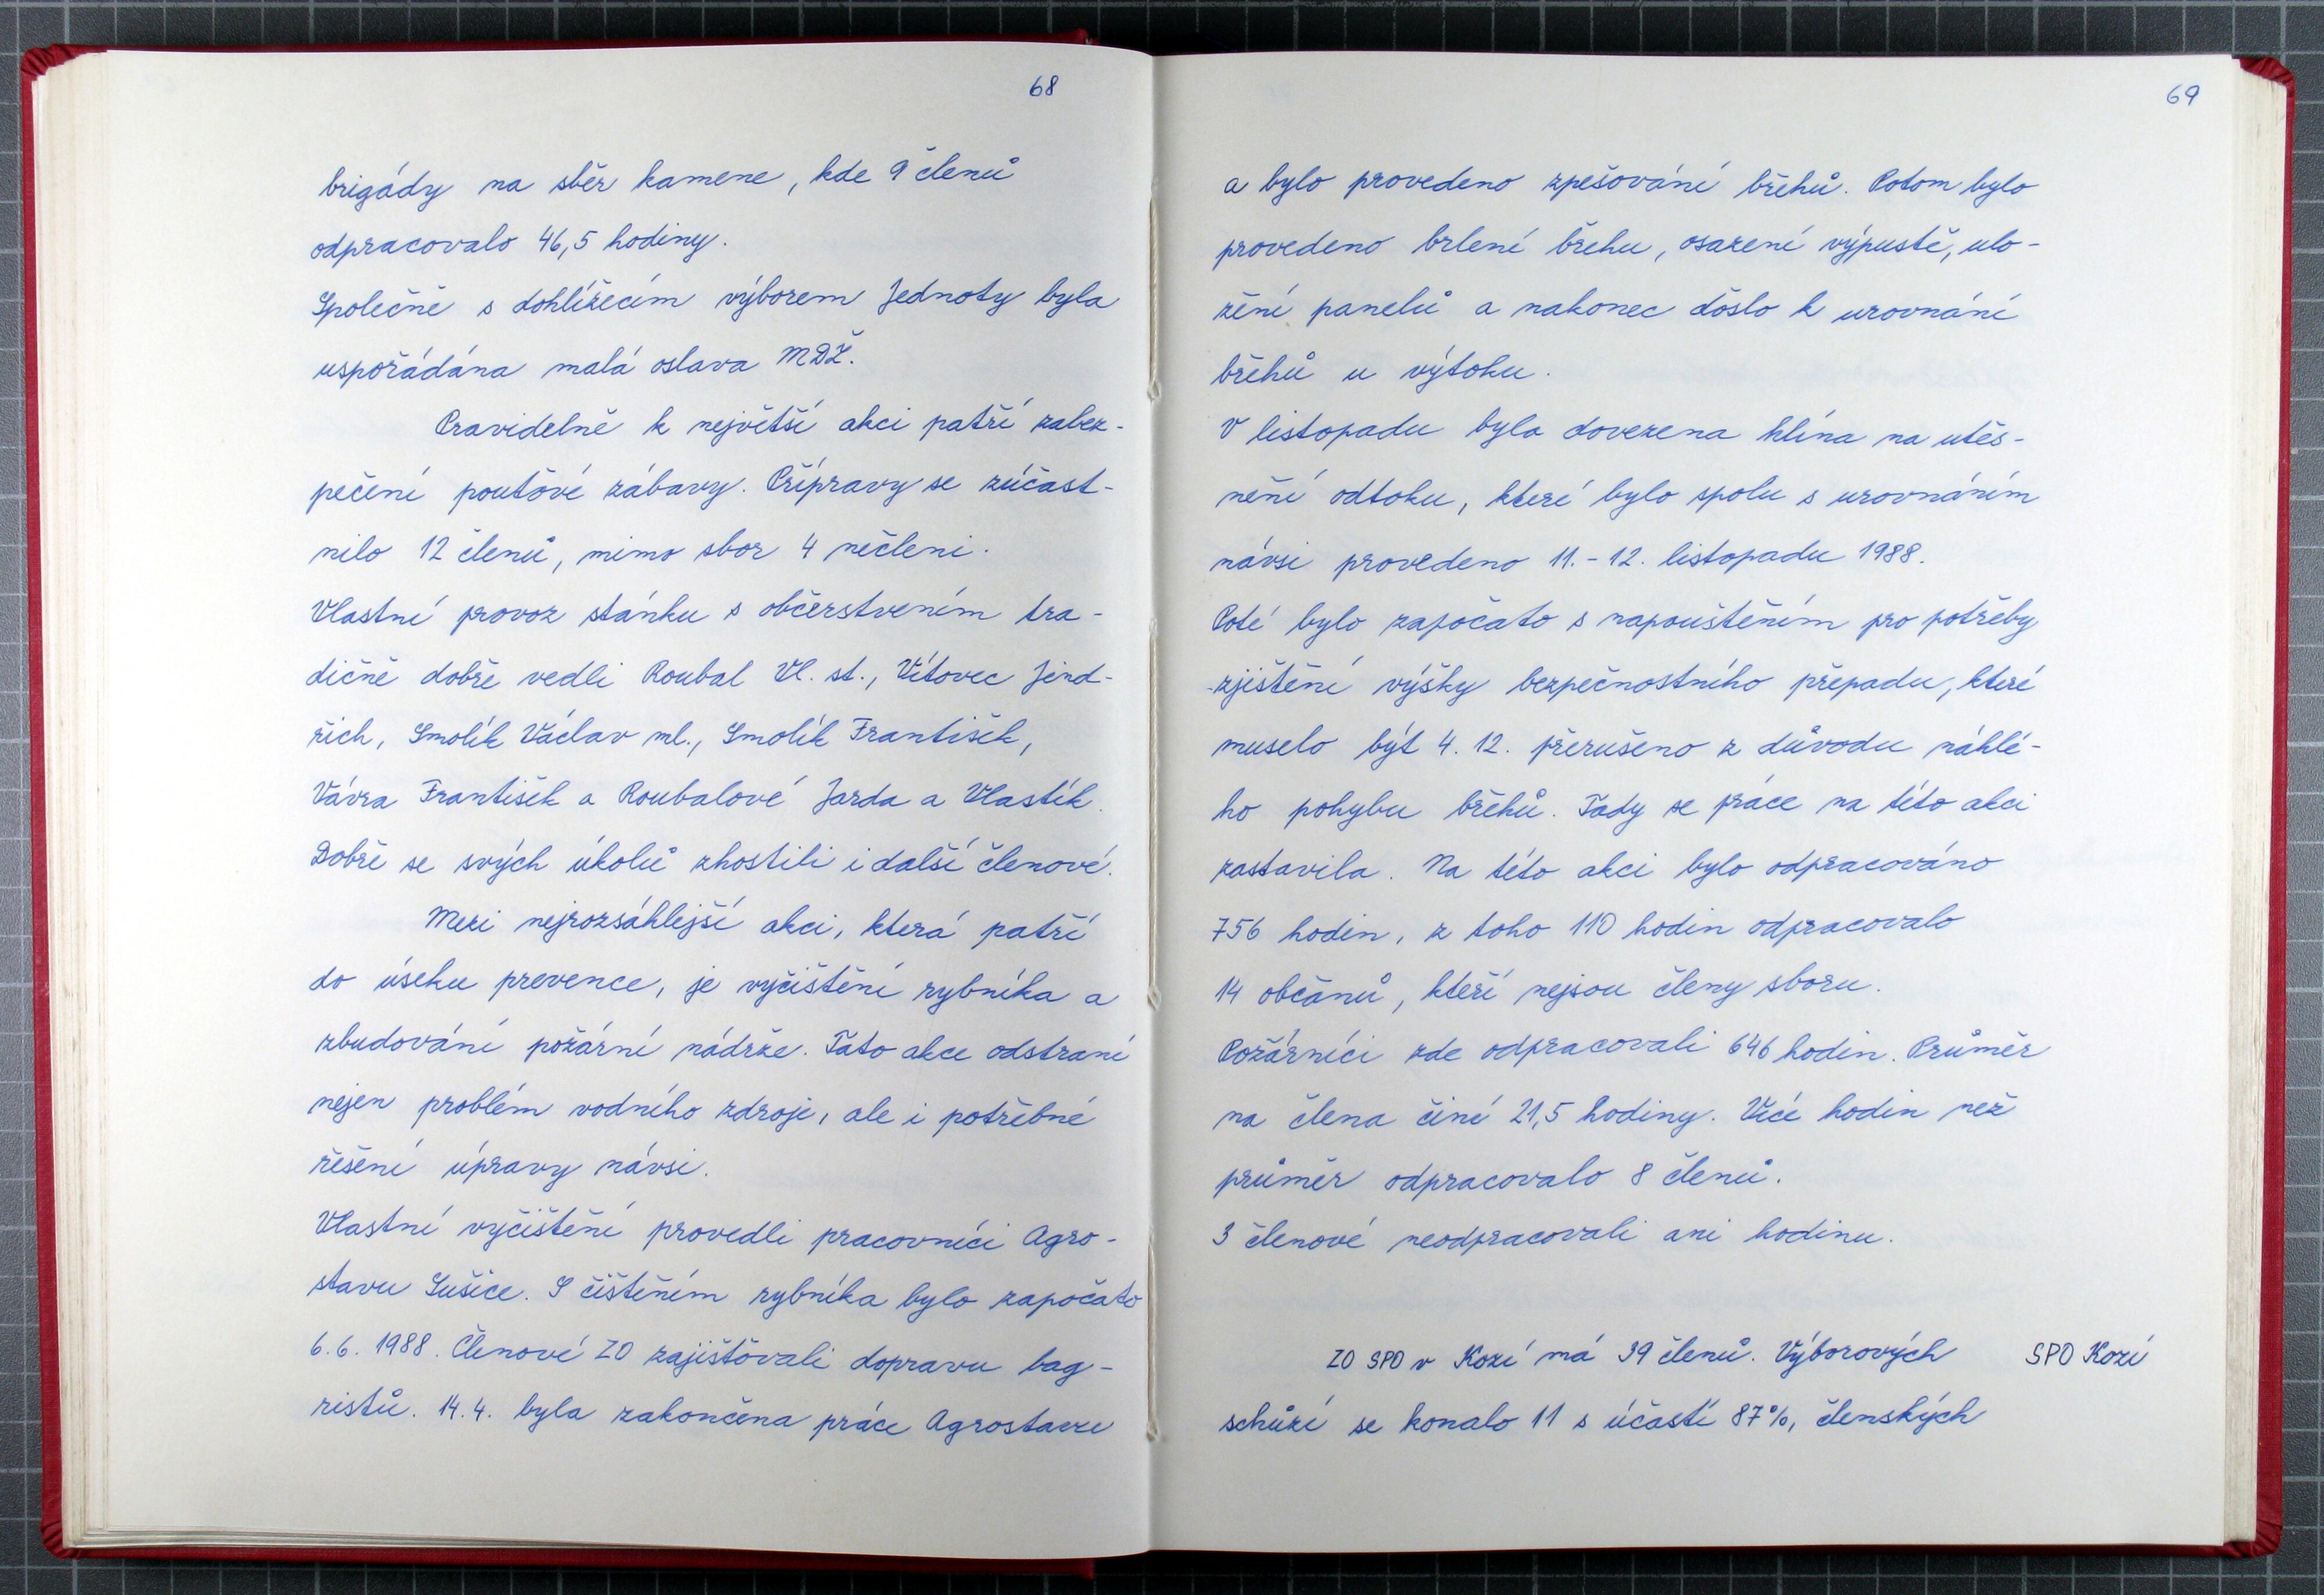 68
brigády na sběr kamene, kde 9 členů
odpracovalo 46,5 hodiny.
Společně s dohlížecím výborem Jednoty byla
uspořádána malá oslava MDŽ.
Pravidelně k největší akci patří zabez-
pečení pouťové zábavy. Přípravy se zúčast-
nilo 12 členů, mimo sbor 4 nečleni.
Vlastní provoz stánku s občerstvením tra-
dičně dobře vedli Roubal Vl. st., Vítovec Jind-
řich, Smolík Václav ml., Smolík František,
Vávra František a Roubalové Jarda a Vlastík.
Dobře se svých úkolů zhostili i další členové.
Mezi nejrozsáhlejší akci, která patří
do úseku prevence, je vyčištění rybníka a
zbudování požární nádrže. Tato akce odstraní
nejen problém vodního zdroje, ale i potřebné
řešení úpravy návsi.
Vlastní vyčištění provedli pracovníci Agro-
stavu Sušice. S čištěním rybníka bylo započato
6.6. 1988. Členové ZO zajišťovali dopravu bag-
ristů. 14.4. byla zakončena práce Agrostavu
69
a bylo provedeno zpešování břehů. Potom bylo
provedeno brlení břehu, osazení výpustě, ulo-
žení panelů a nakonec došlo k urovnání
břehů u výtoku.
V listopadu byla dovezena hlína na utěs-
nění odtoku, které bylo spolu s urovnáním
návsi provedeno 11.-12. listopadu 1988.
Poté bylo započato s napouštěním pro potřeby
zjištění výšky bezpečnostního přepadu, které
muselo být 4. 12. přerušeno z důvodu náhlé-
ho pohybu břehů. Tady se práce na této akci
zastavila. Na této akci bylo odpracováno
756 hodin, z toho 110 hodin odpracovalo
14 občanů, kteří nejsou členy sboru.
Požárníci zde odpracovali 646 hodin. Průměr
na člena činí 21,5 hodiny. Více hodin než
průměr odpracovalo 8 členů.
3 členové neodpracovali ani hodinu.
ZO SPO v Kozí má 39 členů. Výborových
SPO Kozí
schůzí se konalo 11 s účastí 87%, členských